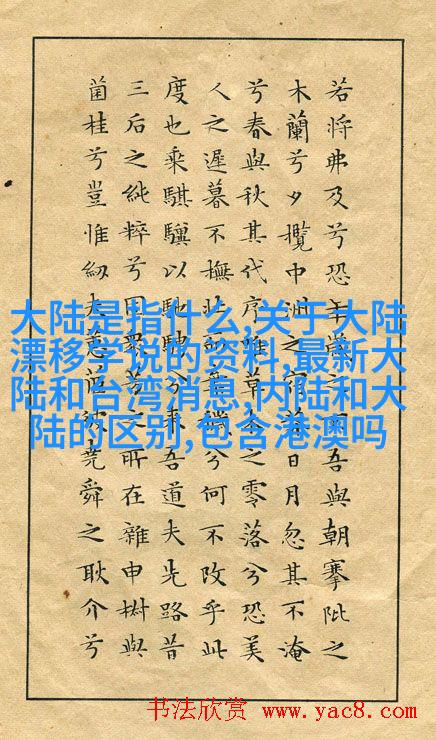 若將弗及兮恐年歲之不吾與朝搴阰之
木蘭兮夕攬中洲之宿莽日月忽其不淹
兮春與秋其代序惟草木之零落兮恐美
人之遲暮不撫壯兮何不改乎此
度也乘騏驥以馳騁兮來吾道夫先路昔
三后之純粹兮固衆芳之所在雜申椒與
菌桂兮豈惟紉夫蕙茝彼堯舜之耿介兮
大陆是指什么,关于大陆
漂移学说的资料,最新大
陆和台湾消息,内陆和大
陆的区别,包含港澳吗
书法欣赏 www.yac8.com